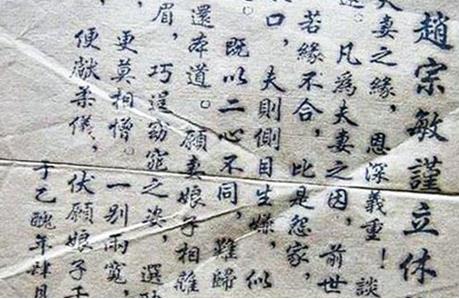 趙宗敏謹立休
夫妻之緣，恩深義重！談
。凡為夫妻之因，前世
若緣不合，比是怨家，
口，夫則側目生嫌，似
。既以二心不同，難歸
還本道。願妻娘子相離
眉，巧逞窈窕之姿，選
更莫相憎。一別雨寬，
便獻柔儀，伏願娘子千
于乙醜年肆月